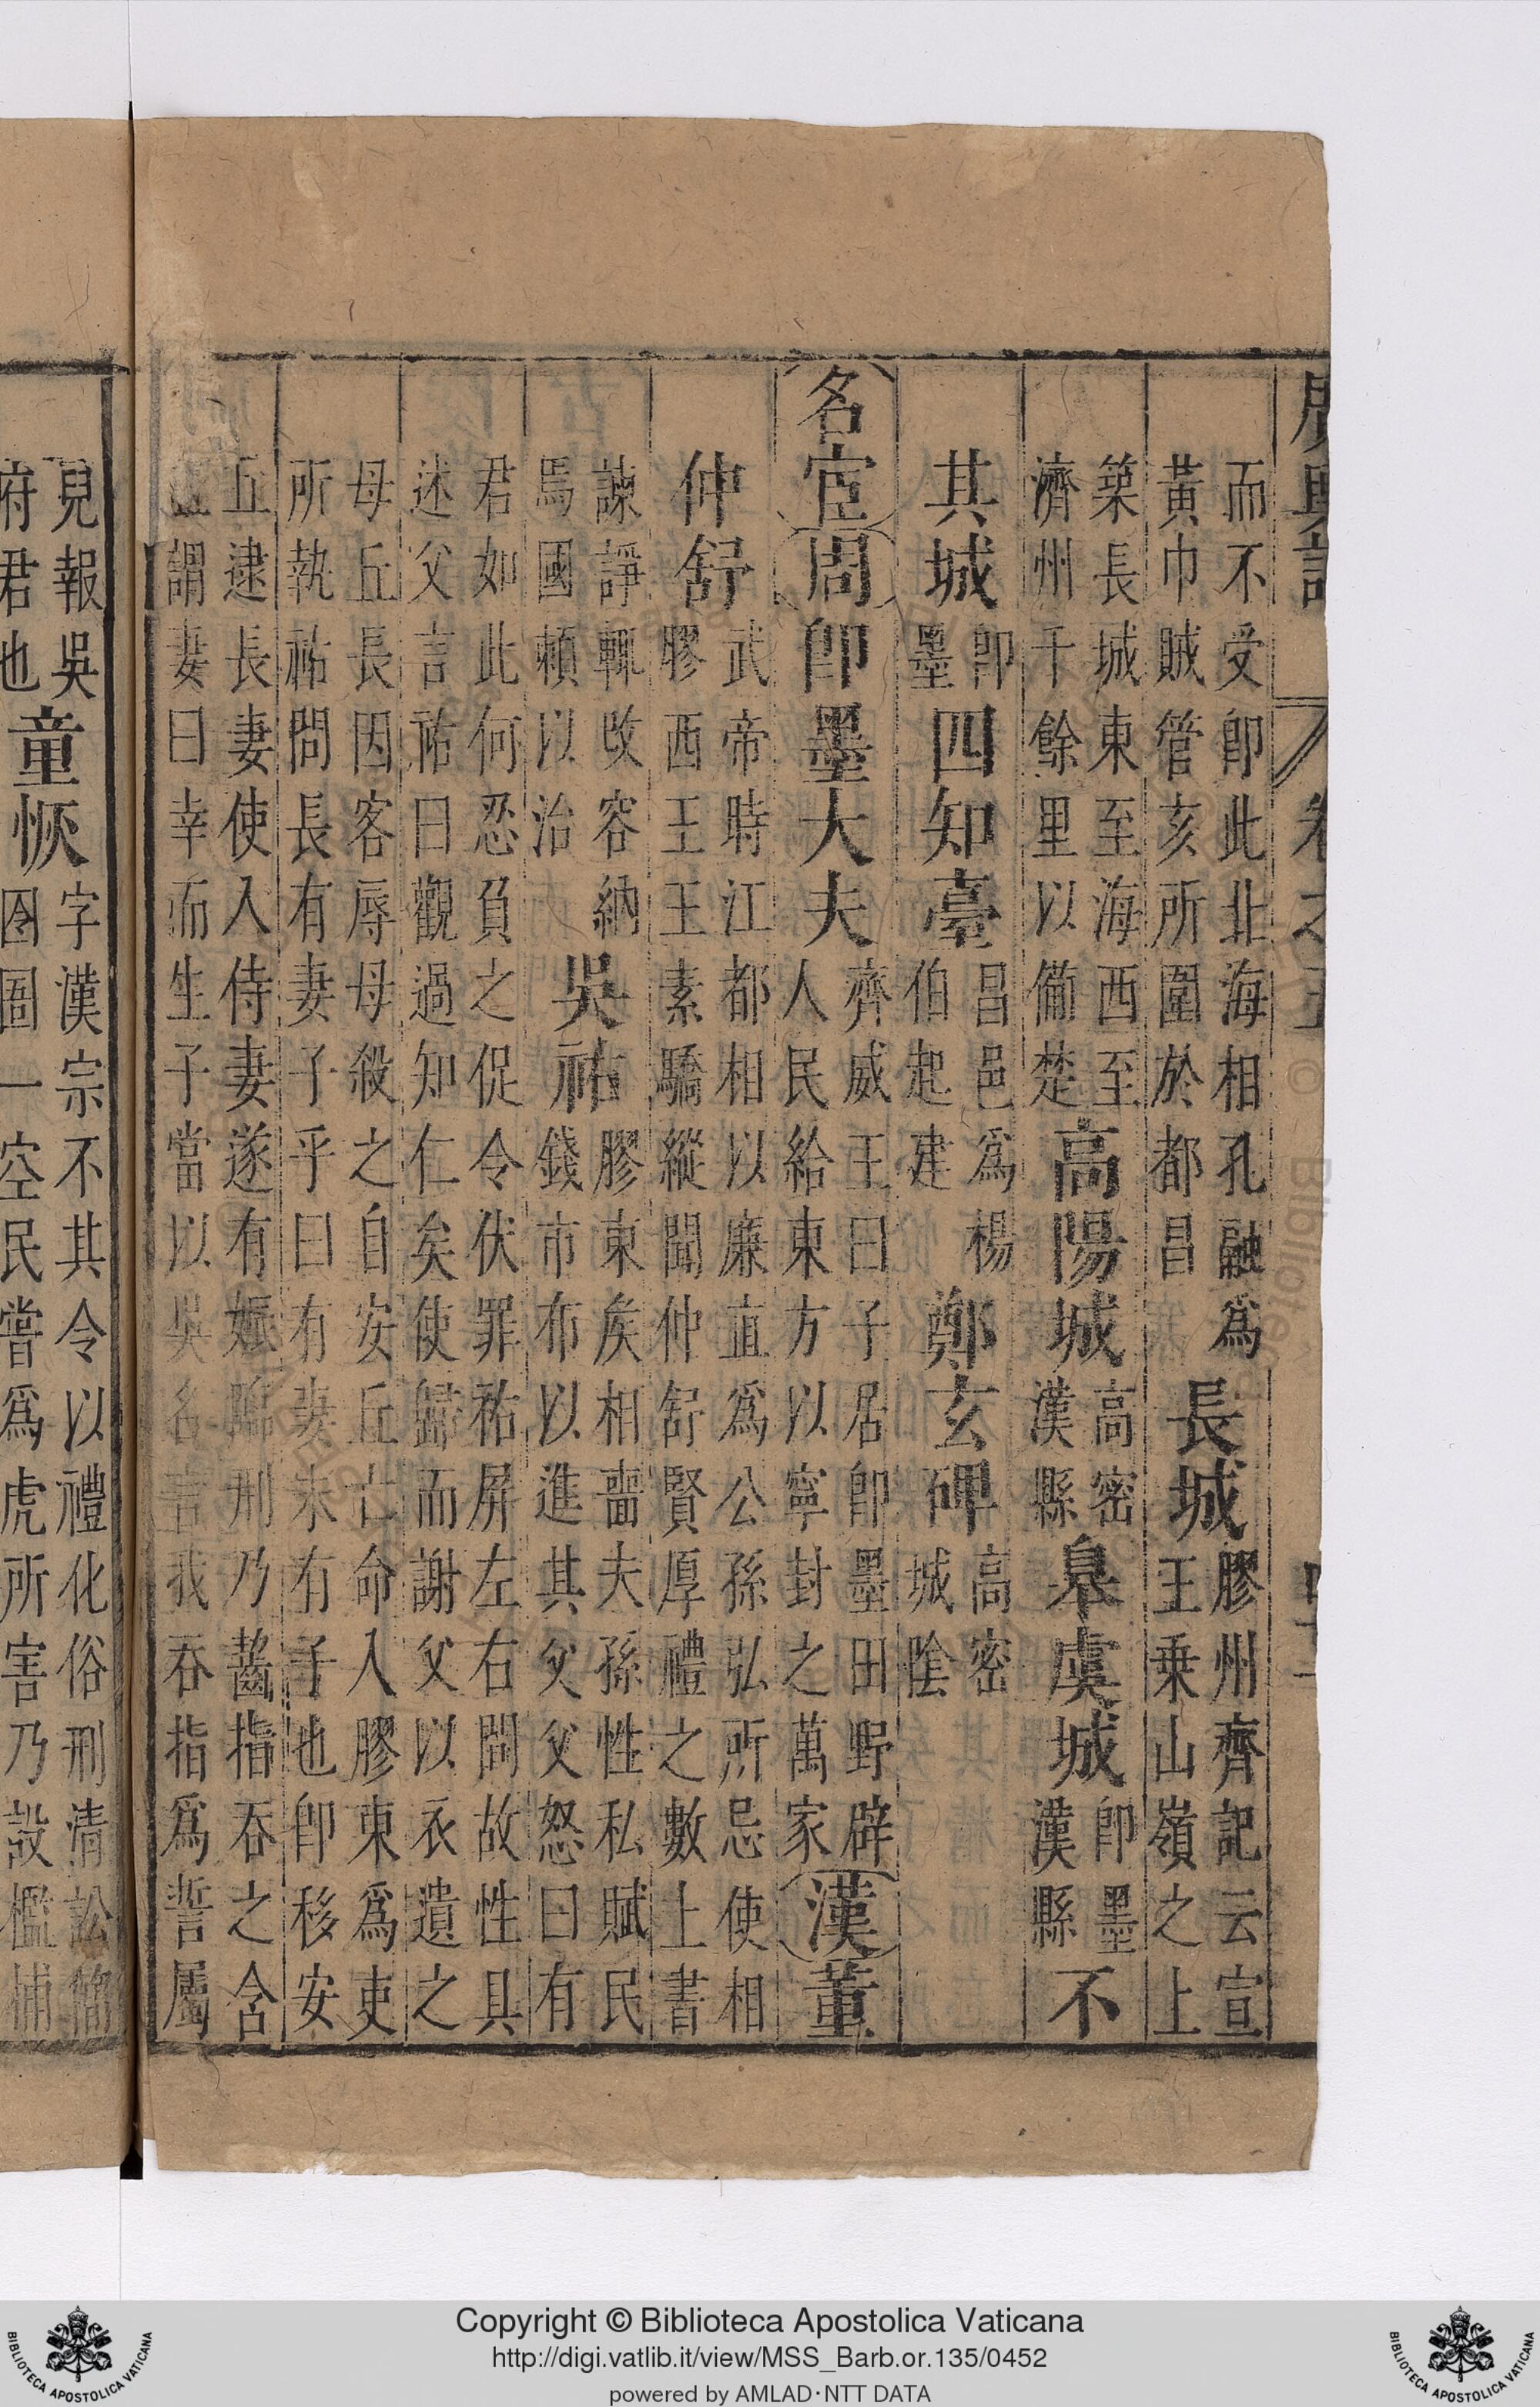 廣輿記 卷之五
而不受卽此北海相孔融爲
黃巾賊管亥所圍於都昌
長城
膠州齊記云宣
王乗山嶺之上
築長城東至海西至
濟州千餘里以備楚
高陽城
高密
漢縣
皋虞城
卽墨
漢縣
不
其城
卽
墨
四知臺
昌邑爲楊
伯起建
鄭玄碑
高密
城陰
名宦
周
卽墨大夫
齊威王曰子居卽墨田野辟
人民給東方以寧封之萬家
漢
董
仲舒
武帝時江都相以廉直爲公孫弘所忌使相
膠西王王素驕縱聞仲舒賢厚禮之數上書
諫諍輒改容納
焉國賴以治
吳祐
膠東侯相嗇夫孫性私賦民
錢市布以進其父父怒曰有
君如此何忍負之促令伏罪祐屏左右問故性具
述父言祐曰觀過知仁矣使歸而謝父以衣遺之
母丘長因客辱母殺之自安丘亡命入膠東爲吏
所執祐問長有妻子乎曰有妻未有子也卽移安
丘逮長妻使入侍妻遂有娠臨刑乃齧指吞之含
謂妻曰幸而生子當以吳名言我吞指爲誓屬
兒報吳
府君也
童恢
字漢宗不其令以禮化俗刑清訟簡
囹圄一空民嘗爲虎所害乃設檻捕
Copyright © Biblioteca Apostolica Vaticana
http://digi.vatlib.it/view/MSS_Barb.or.135/0452
powered by AMLAD·NTT DATA
BIBLIOTECA APOSTOLICA VATICANA
BIBLIOTECA APOSTOLICA VATICANA